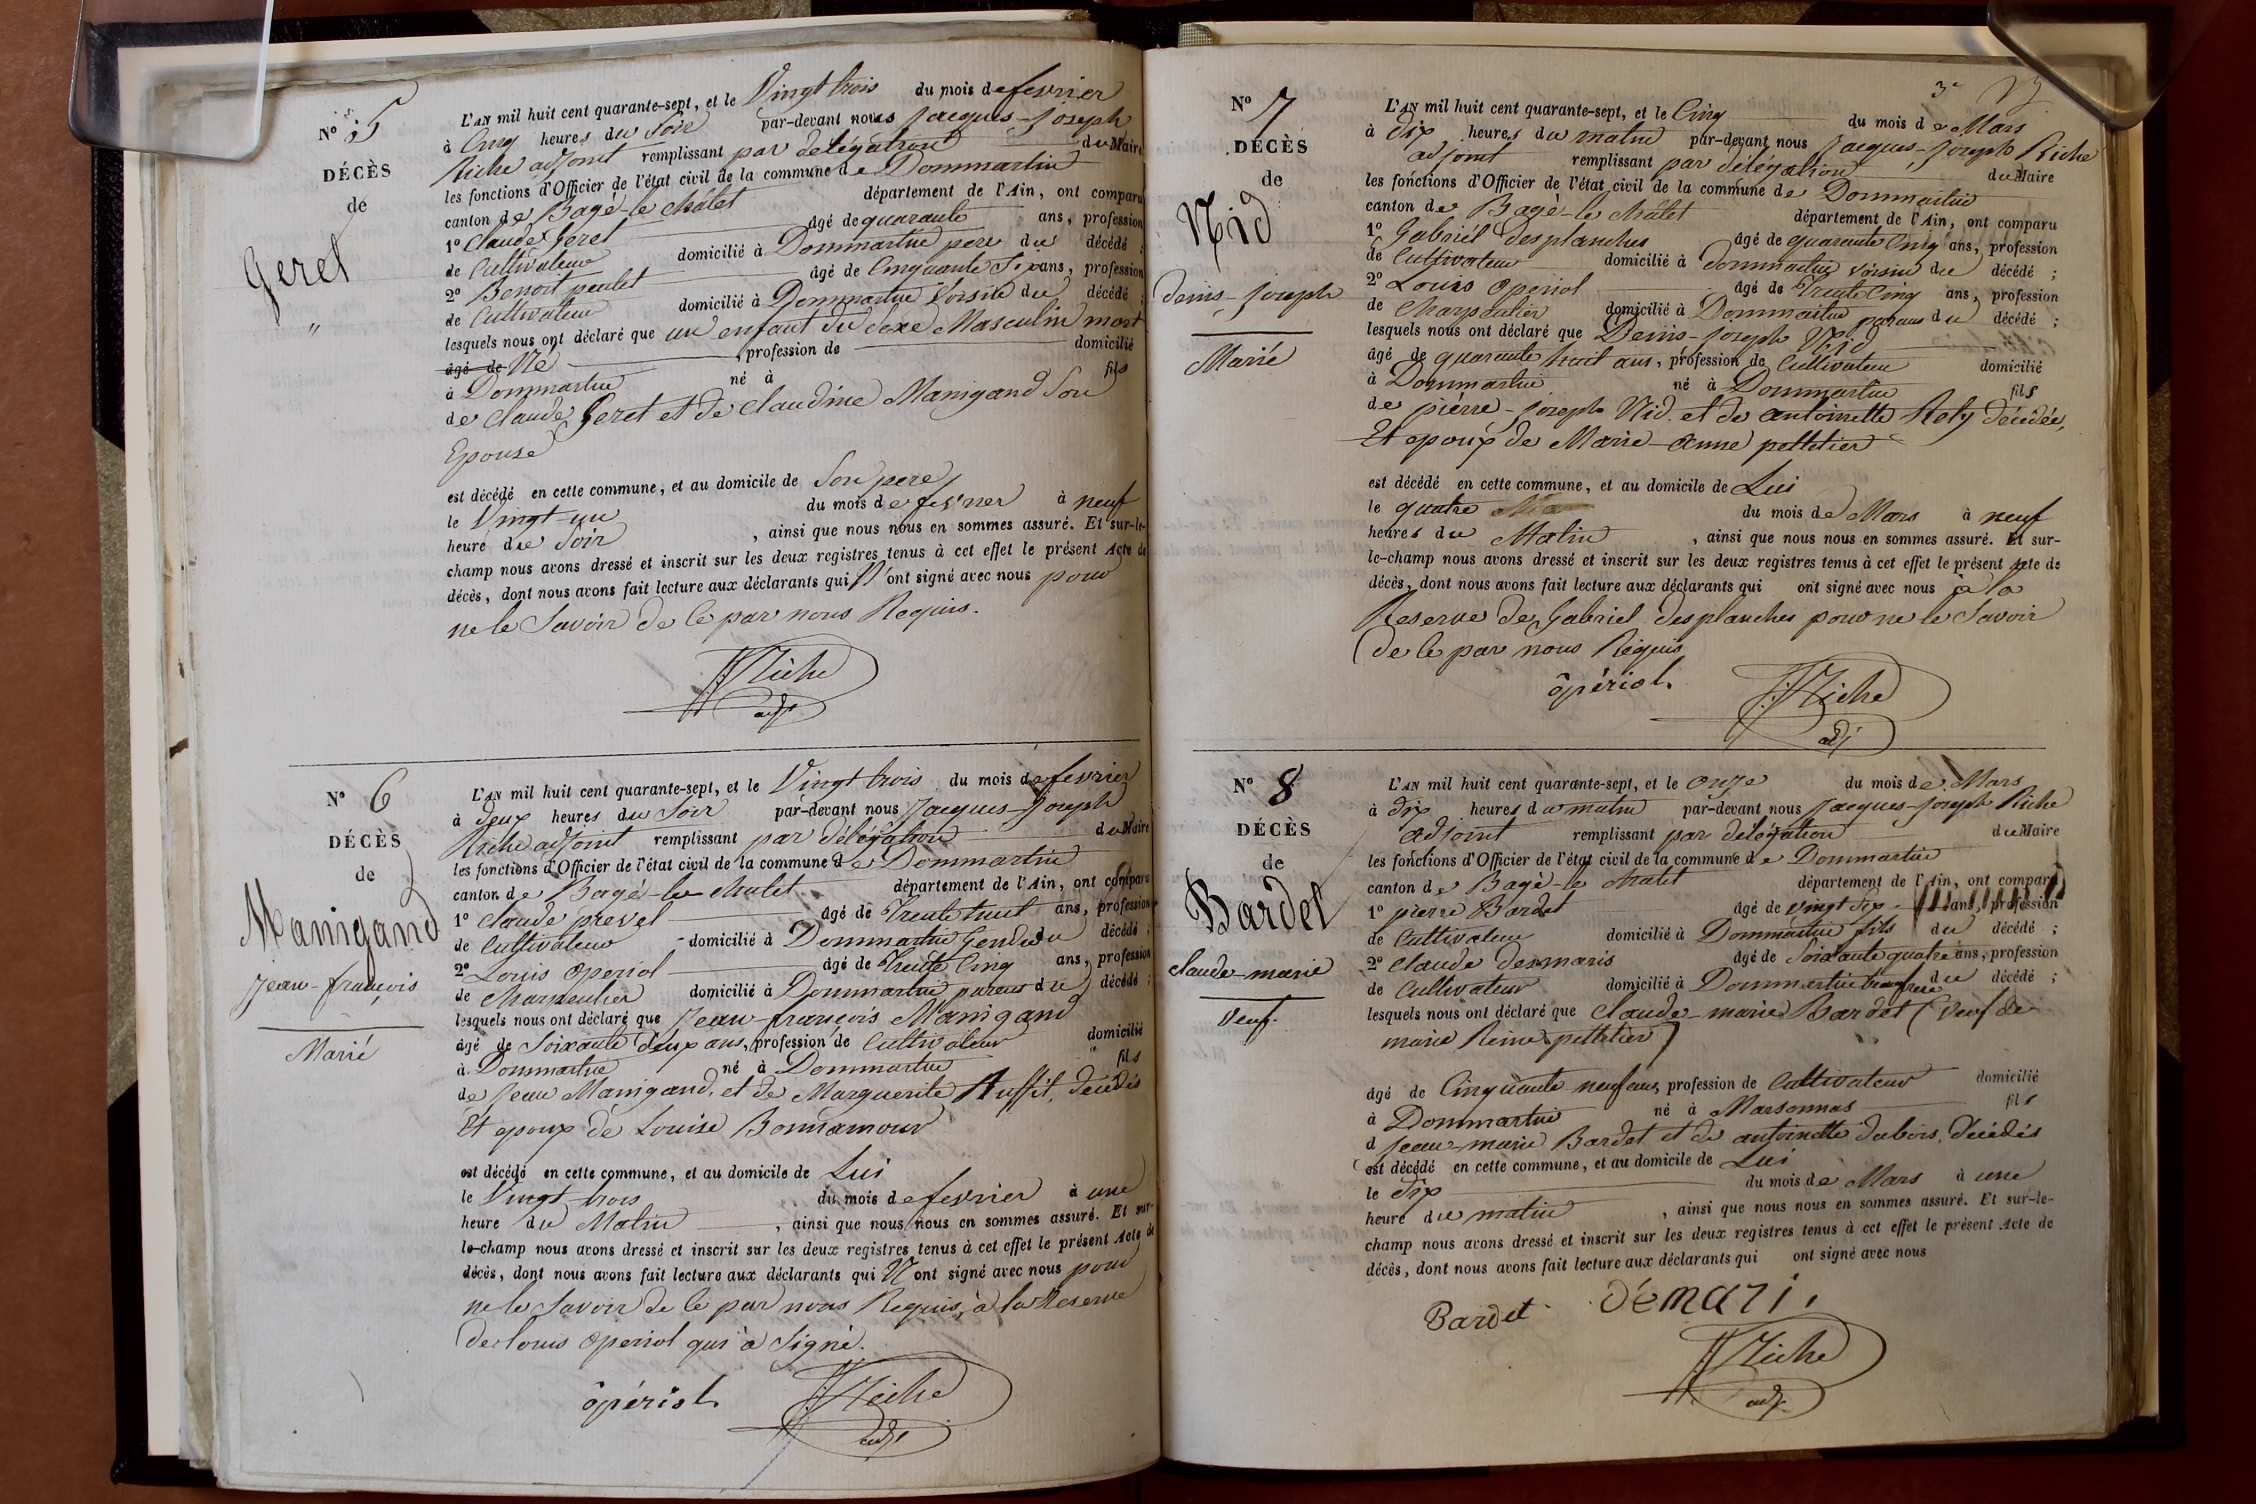 N° 5
DÉCÈS
de
Geret
"
L'AN mil huit cent quarante-sept, et le Vingt trois du mois de fevrier
à Cinq heures du Soir par-devant nous Jacques-Joseph
Riche adjoint remplissant par délégation du Maire
les fonctions d'Officier de l'état civil de la commune de Dommartin
canton de Bagé-le chatet département de l'Ain, ont comparu
1° Claude Geret âgé de quarante ans, profession
de Cultivateur domicilié à Dommartin pere du décédé ;
2° Benoit peulet âgé de Cinquante Six ans, profession
de Cultivateur domicilié à Dommartin Voisin du décédé ;
lesquels nous ont déclaré que un enfant du Sexe Masculin mort
âgé de Né , profession de domicilié
à Dommartin né à fils
de Claude Geret et de Claudine Manigand Son
Epouse
est décédé en cette commune, et au domicile de Son pere
le Vingt-un du mois de fevrier à neuf
heure du Soir , ainsi que nous nous en sommes assuré. Et sur-le-
champ nous avons dressé et inscrit sur les deux registres tenus à cet effet le présent Acte de
décès, dont nous avons fait lecture aux déclarants qui N'ont signé avec nous pour
ne le Savoir de ce par nous Requis.
JJ Riche
adj
N° 6
DÉCÈS
de
Manigand
Jean-françois
Marié
L'AN mil huit cent quarante-sept, et le Vingt trois du mois de fevrier
à deux heures du Soir par-devant nous Jacques-Joseph
Riche adjoint remplissant par délégation du Maire
les fonctions d'Officier de l'état civil de la commune de Dommartin
canton de Bagé-le chatet département de l'Ain, ont comparu
1° Claude prevel âgé de Trente huit ans, profession
de Cultivateur domicilié à Dommartin Gendre du décédé ;
2° Louis Operiol âgé de Trente Cinq ans, profession
de Charpentier domicilié à Dommartin parent du décédé ;
lesquels nous ont déclaré que Jean-françois Manigand
âgé de Soixante deux ans, profession de Cultivateur domicilié
à Dommartin né à Dommartin fils
de Jean Manigand, et de Marguerite décédés
Et epoux de Louise Bonnamour
est décédé en cette commune, et au domicile de Lui
le Vingt trois du mois de fevrier à une
heure du Matin , ainsi que nous nous en sommes assuré. Et sur-
le-champ nous avons dressé et inscrit sur les deux registres tenus à cet effet le présent Acte de
décès, dont nous avons fait lecture aux déclarants qui N'ont signé avec nous pour
ne le Savoir de ce par nous Requis, à la Reserve
de louis Operiol qui à Signé.
ôpériol. JJ Riche
adj
3e
N° 7
DÉCÈS
de
Nid
denis-Joseph
Marié
L'AN mil huit cent quarante-sept, et le Cinq du mois de Mars
à dix heures du matin par-devant nous Jacques-Joseph Riche
adjoint remplissant par délégation du Maire
les fonctions d'Officier de l'état civil de la commune de Dommartin
canton de Bagé-le chatet département de l'Ain, ont comparu
1° Gabriel desplanches âgé de quarante Cinq ans, profession
de Cultivateur domicilié à dommartin Voisin du décédé ;
2° Louis Operiol âgé de Trente Cinq ans, profession
de Charpentier domicilié à Dommartin parent du décédé ;
lesquels nous ont déclaré que Denis-Joseph Nid
âgé de quarante huit ans, profession de Cultivateur domicilié
à Dommartin né à Dommartin fils
de pierre-Joseph Nid et de antoinette Roly décédée,
Et epoux de Marie-anne pelletier
est décédé en cette commune, et au domicile de Lui
le quatre du mois de Mars à neuf
heures du Matin , ainsi que nous nous en sommes assuré. Et sur-
le-champ nous avons dressé et inscrit sur les deux registres tenus à cet effet le présent Acte de
décès, dont nous avons fait lecture aux déclarants qui ont signé avec nous à la
Reserve de Gabriel desplanches pour ne le Savoir
de ce par nous Requis
ôpériol. JJ Riche
adj
N° 8
DÉCÈS
de
Bardet
claude-marie
Veuf.
L'AN mil huit cent quarante-sept, et le onze du mois de Mars
à dix heures du matin par-devant nous Jacques-Joseph Riche
adjoint remplissant par délégation du Maire
les fonctions d'Officier de l'état civil de la commune de Dommartin
canton de Bagé-le chatet département de l'Ain, ont comparu
1° pierre Bardet âgé de vingt six ans, profession
de Cultivateur domicilié à Dommartin fils du décédé ;
2° Claude desmaris âgé de Soixante quatre ans, profession
de Cultivateur domicilié à Dommartin beaufrere du décédé ;
lesquels nous ont déclaré que Claude-marie Bardet (Veuf de
marie Reine pelletier)
âgé de Cinquante neuf ans, profession de Cultivateur domicilié
à Dommartin né à Marsonnas fils
d Jean-marie Bardet et de antoinette dubois, décédés
est décédé en cette commune, et au domicile de Lui
le dix du mois de Mars à une
heure du matin , ainsi que nous nous en sommes assuré. Et sur-le-
champ nous avons dressé et inscrit sur les deux registres tenus à cet effet le présent Acte de
décès, dont nous avons fait lecture aux déclarants qui ont signé avec nous
Bardet démari.
JJ Riche
adj.